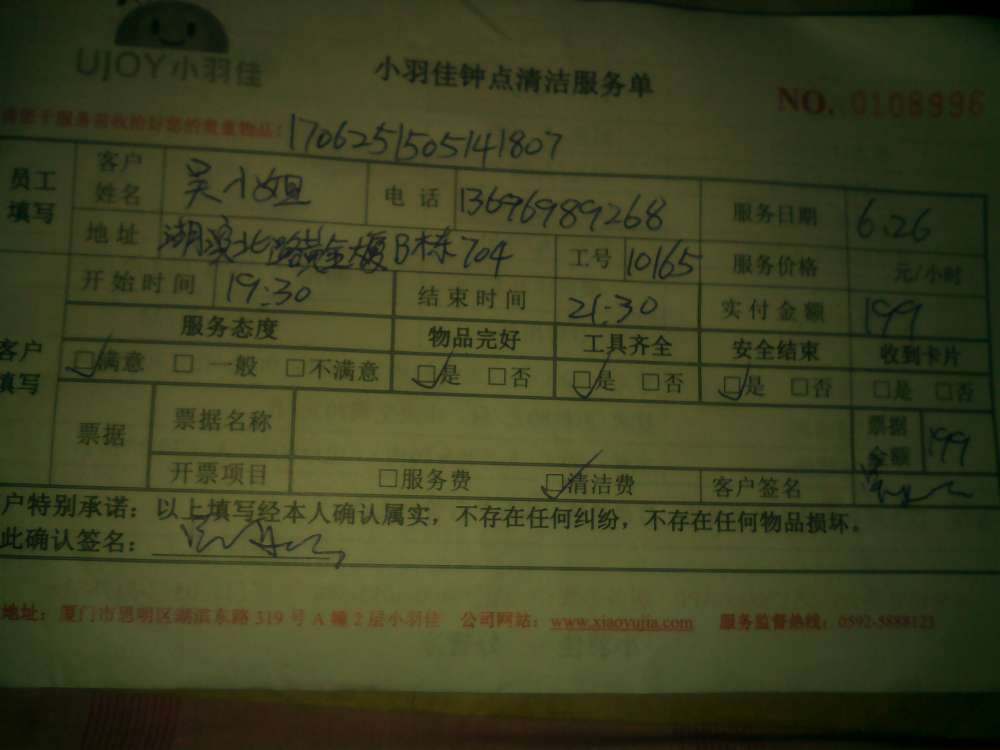 UJOY小羽佳
小羽佳钟点清洁服务单
NO. 0108996
1706251505141807
员工填写 客户姓名 吴小姐 电话 13696989268 服务日期 6.26
地址 湖滨北路黄金大厦B栋704 工号 10165 服务价格 元/小时
开始时间 19:30 结束时间 21:30 实付金额 199
客户填写 服务态度 物品完好 工具齐全 安全结束 收到卡片
☑满意 □一般 □不满意 ☑是 □否 ☑是 □否 ☑是 □否 □是 □否
票据 票据名称 票据金额 199
开票项目 □服务费 ☑清洁费 客户签名
户特别承诺：以上填写经本人确认属实，不存在任何纠纷，不存在任何物品损坏。
此确认签名：
地址：厦门市思明区湖滨东路319号A幢2层小羽佳 公司网站：www.xiaoyujia.com 服务监督热线：0592-5888123